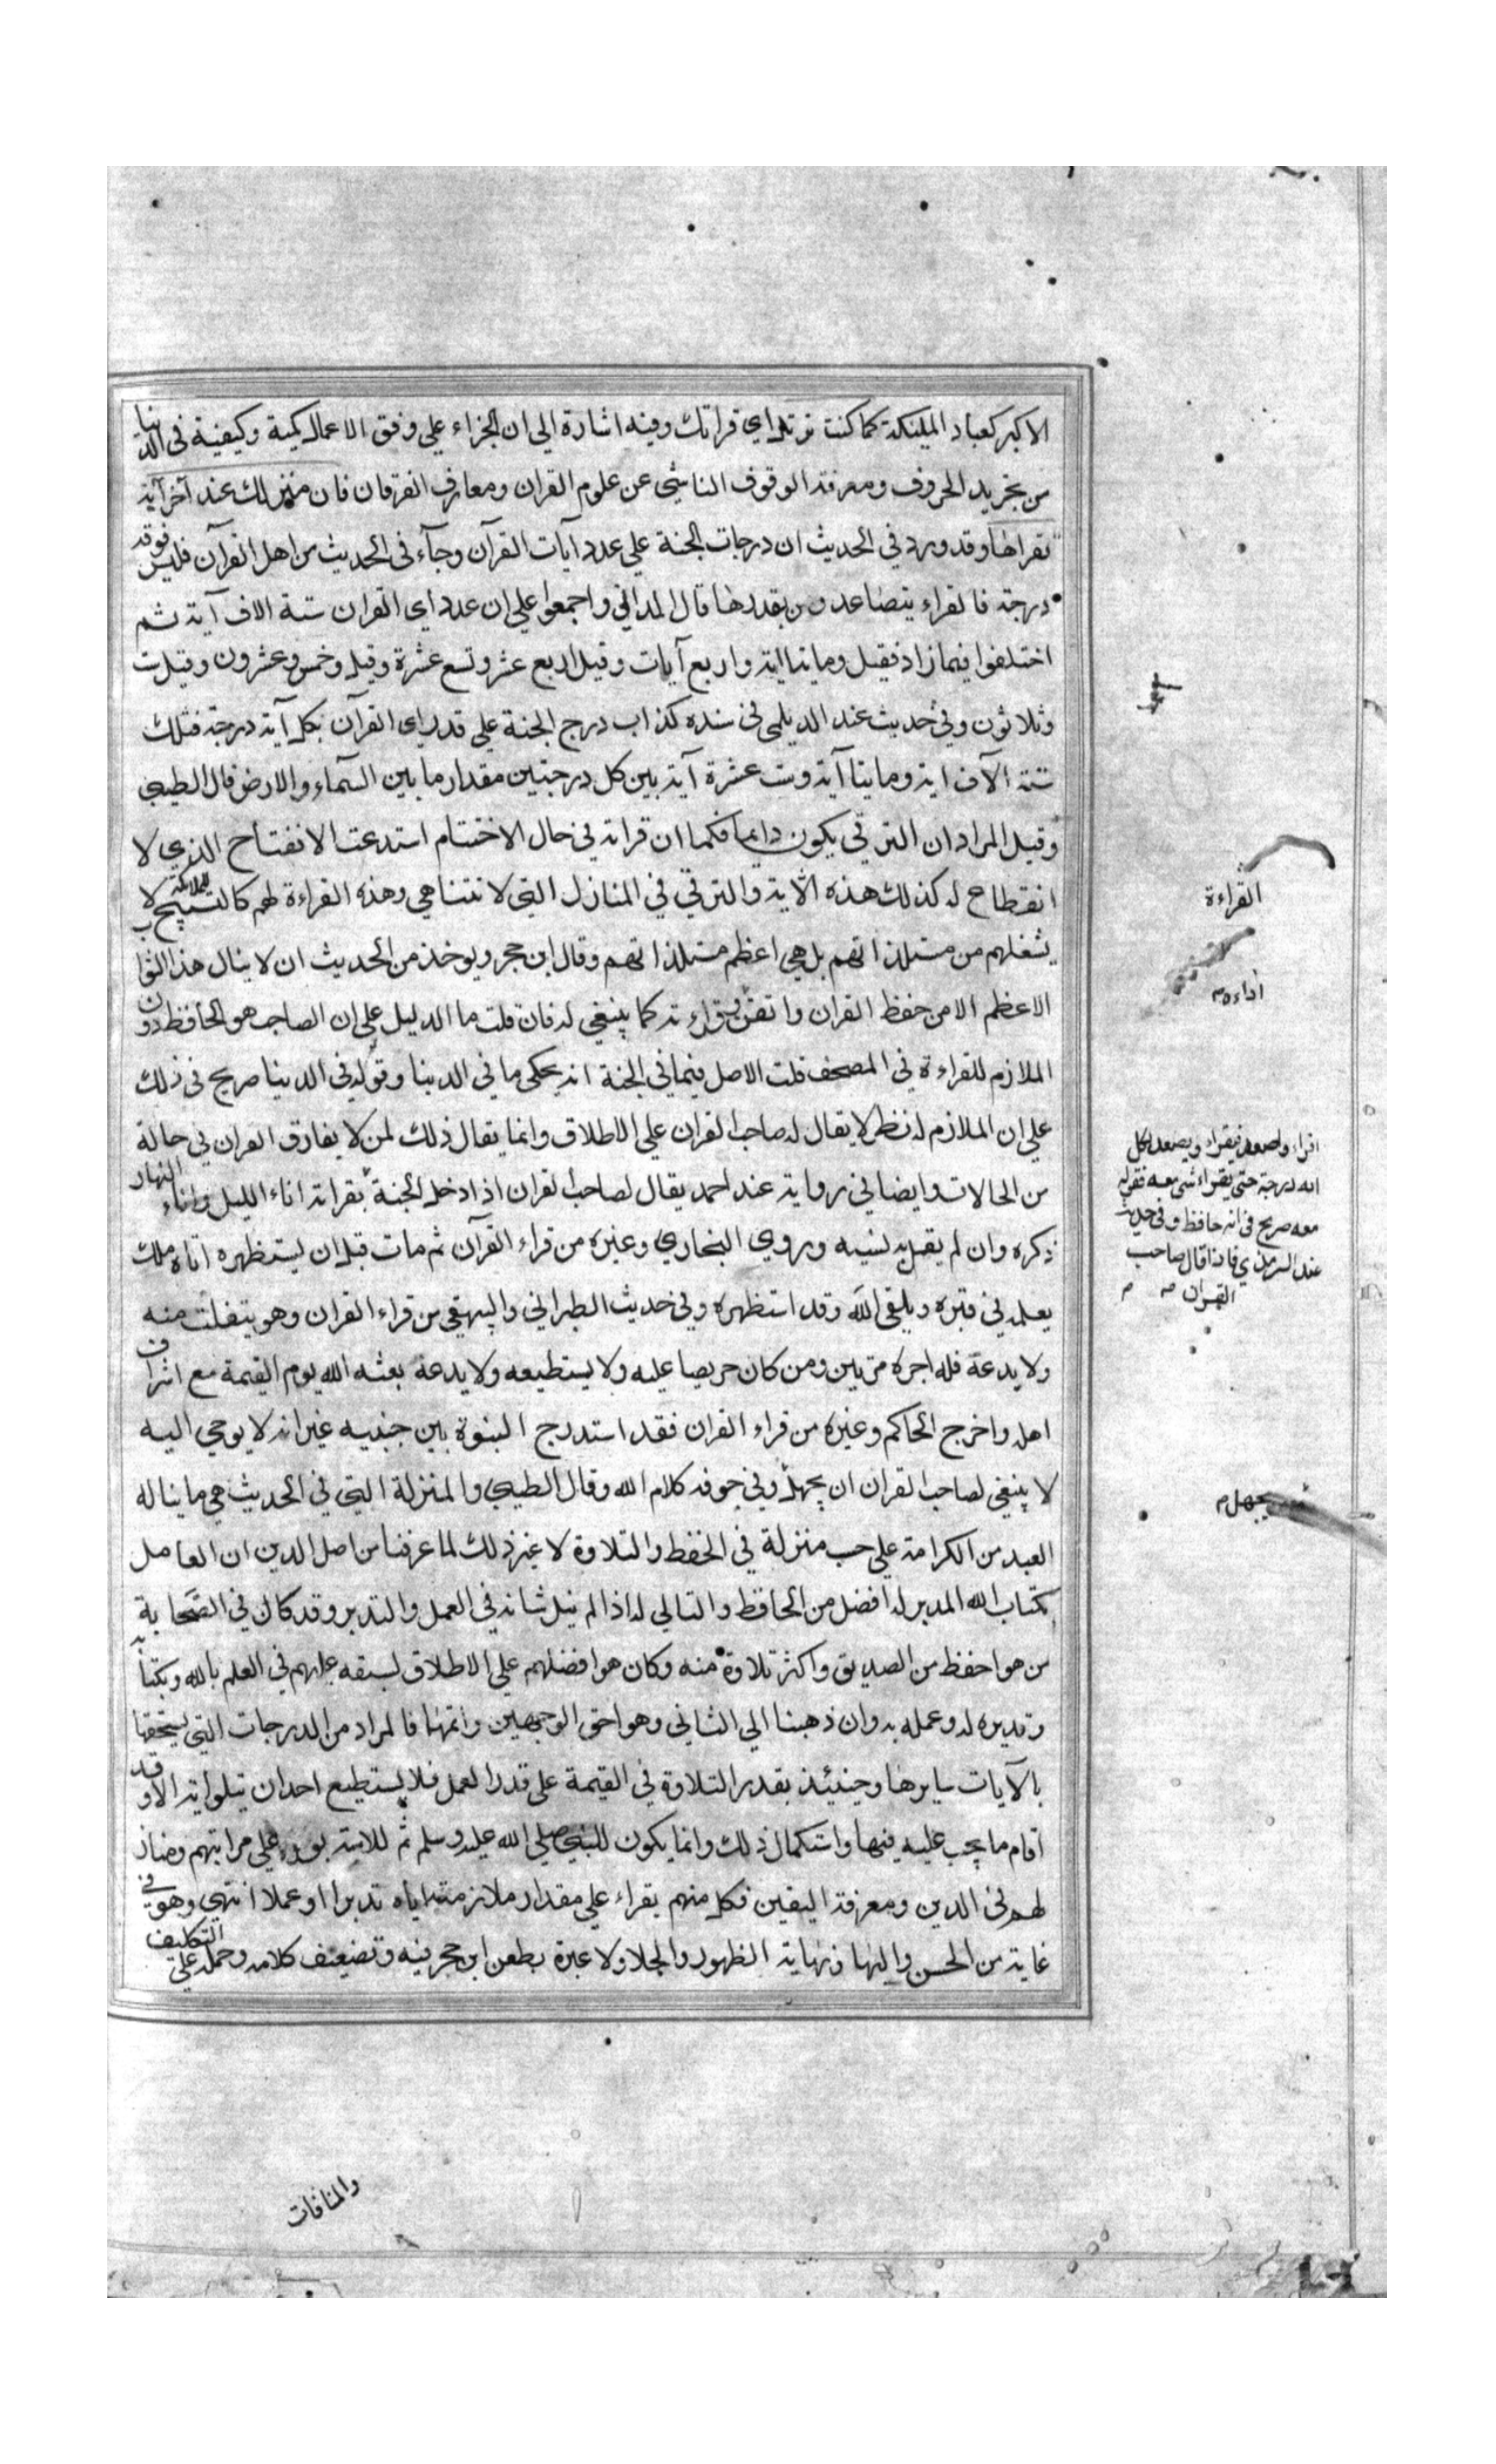 الاكبر كعباد الملئكة كما كنت ترتل اي قراتك وفيه اشارة الي ان الجزاء علي وفق الاعمال كمية وكيفية في الدنيا
من تجريد الحروف ومعرفة الوقوف الناشي عن علوم القران ومعارف الفرقان فان منزلك عند آخر آية
تقراها وقد ورد في الحديث ان درجات الجنة علي عدد آيات القرآن وجآء في الحديث من اهل القرآن فليس فوقه
درجة فالقراء يتصاعدون بقدرها قال الداني واجمعوا علي ان عدد اي القران ستة الاف آية ثم
اختلفوا فيما زاد فقيل ومايتا اية واربع آيات وقيل اربع عشر وتسع عشرة وقيل وخمس وعشرون وقيل ست
وثلاثون وفي حديث عند الديلمي في سنده كذاب درج الجنة علي قدر اي القرآن بكل آية درجة فتلك
ستة الآف اية ومايتا آية وست عشرة آية بين كل درجتين مقدار ما بين السمآء والارض قال الطيبي
وقيل المراد ان الترقي يكون دايما فكما ان قراته في حال الاختتام استدعت الافتتاح الذي لا
انقطاع له كذلك هذه الاية والترقي في المنازل التي لا تتناهي وهذه القراءة لهم كالتسبيح للملائكة لا
يشغلهم من مستلذاتهم بل هي اعظم مستلذاتهم وقال ابن حجر ويوخذ من الحديث ان لا ينال هذا الثواب
الاعظم الا من حفظ القران واتقن بقراءته كما ينبغي له فان قلت ما الدليل علي ان الصاحب هو الحافظ دون
الملازم للقراءة في المصحف قلت الاصل فيما في الجنة انه يحكي ما في الدنيا وقوله في الدينا صريح في ذلك
علي ان الملازم له نظرا لا يقال له صاحب القران علي الاطلاق وانما يقال ذلك لمن لا يفارق القران في حالة
من الحالات وايضا في رواية عند احمد يقال لصاحب القران اذا دخل الجنة بقراته اناء الليل واناء النهار
ذكره وان لم يقم به نسيه وروي البخاري وغيره من قراء القرآن ثم مات قبل ان يستظهره اتاه ملك
يعلمه في قبره ويلقى الله وقد استظهره وفي حديث الطبراني والبيهقي من قراء القران وهو يتفلت منه
ولا يدعه فله اجره مرتين ومن كان حريصا عليه ولا يستطيعه ولا يدعه بعثه الله يوم القيمة مع اشراف
اهله واخرج الحاكم وغيره من قراء القران فقد استدرج النبوة بين جنبيه غير انه لا يوحي اليه
لا ينبغي لصاحب القران ان يجهل وفي جوفه كلام الله وقال الطيبي والمنزلة التي في الحديث هي ما يناله
العبد من الكرامة علي حسب منزلة في الحفظ والتلاوة لا غير ذلك لما عرفنا من اصل الدين ان العامل
بكتاب الله المدبر له افضل من الحافظ والتالي له اذا لم ينل شانه في العمل والتدبر وقد كان في الصحابة
من هو احفظ من الصديق واكثر تلاوة منه وكان هو افضلهم علي الاطلاق لسبقه عليهم في العلم بالله وبكتابه
وتدبره له وعمله به وان ذهبنا الي الثاني وهو احق الوجهين واتمها فالمراد من الدرجات التي يستحقها
بالآيات سايرها وحينئذ بقدر التلاوة في القيمة علي قدر العمل فلا يستطيع احد ان يتلو اية الا وقد
اقام ما يجب عليه فيها واستكمال ذلك وانما يكون للنبي صلي الله عليه وسلم ثم للامة بعده علي مراتبهم ومنازلهم
في الدين ومعرفة اليقين فكل منهم يقراء علي مقدار ملازمته اياه تدبرا او عملا انتهي وهو في
غاية من الحسن والبها ونهاية الظهور والجلا ولا عبرة بطعن ابن حجر فيه وتضعيف كلامه وحمله علي التكليف
القراءة
اداءه م
اقراء واصعد فيقراء ويصعد بكل
اية درجة حتي يقراء شي معه فقوله
معه صريح في انه حافظ وفي حديث
عند الترمذي فاذا قال صاحب
القران
يجهل م
والمنافات